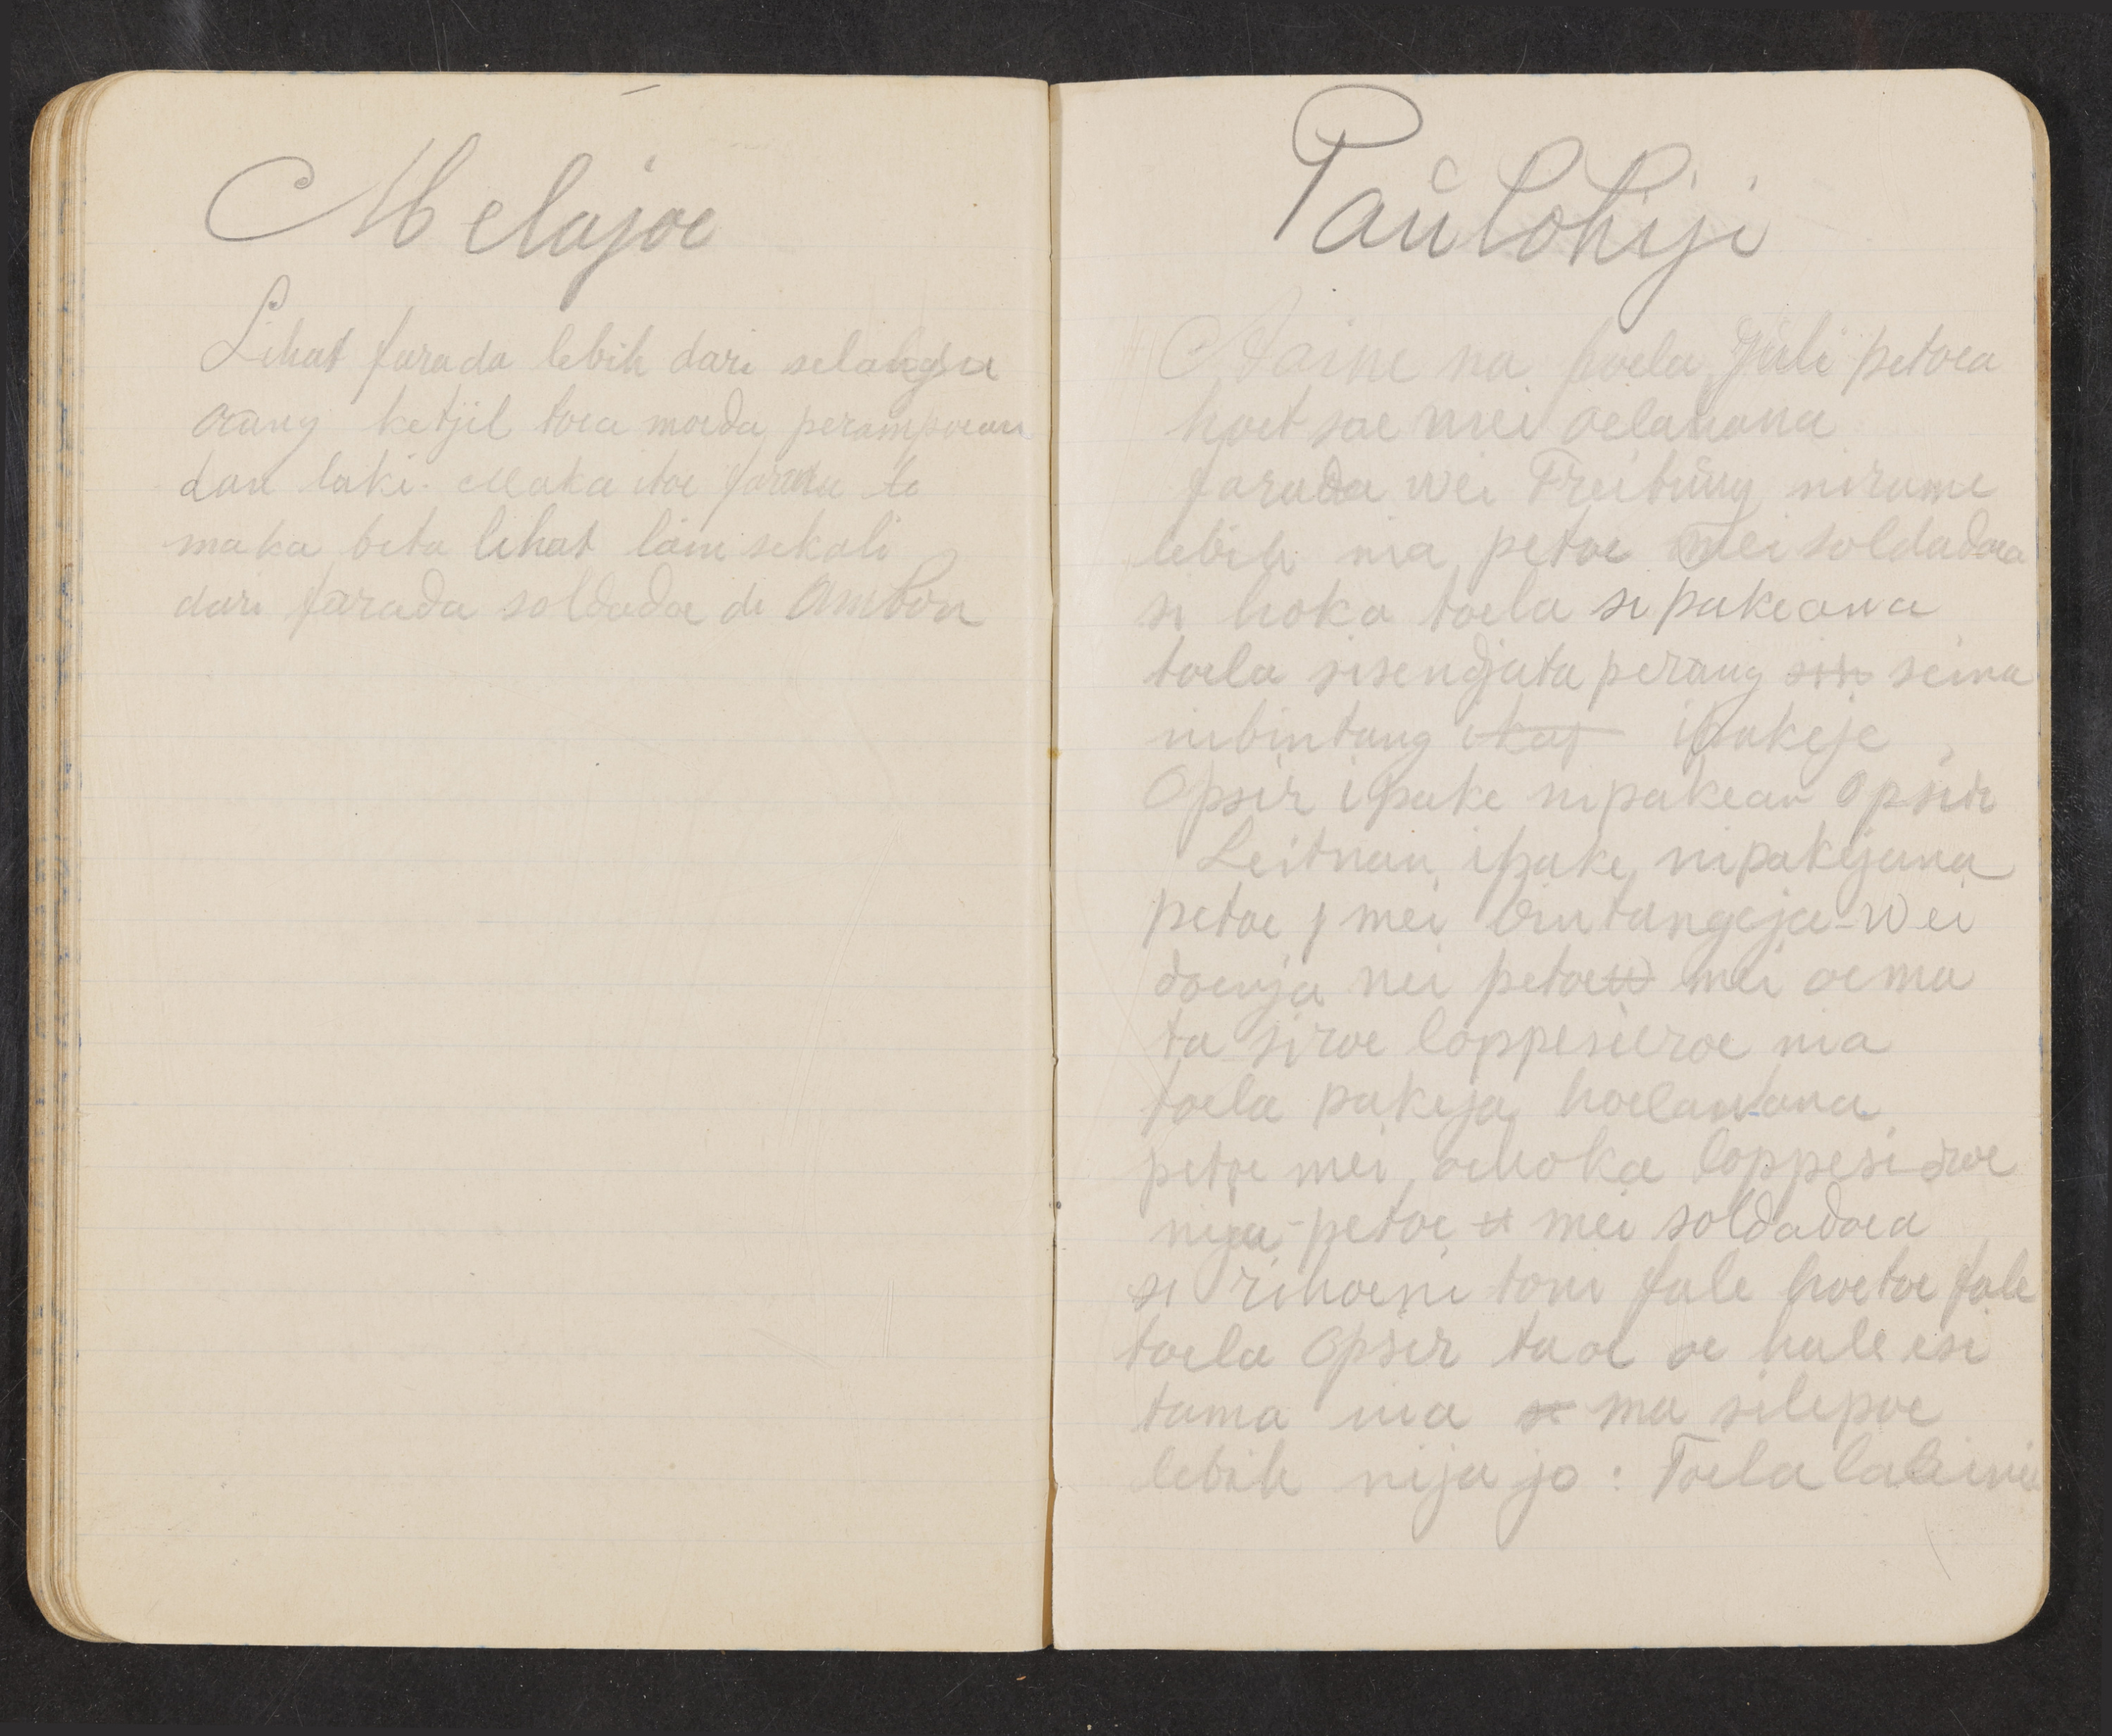 Melajoe
Lihat farada lebih dari selaksa
orang ketjil toea moeda perampoean
dan laki. Maka itoe farada to
maka beta lihat lain sekali
dari farada soldadoe di Ambon
Paŭlohiji
na hoela Juli petoea
hoet sae mei oelanana
farada wei Freibŭng nirame
lebih nia petoe mei soldadoea
si hoka toela si pakeana
toela sisendjata perang seina
nibintang ipakeje
Opsir ipake nipakean Opsir
Leitnan ipake nipakejana
petoe mei bintangeja-wei
doenja nei petoe mei oema
ta siroe loppesieroe nia
toela pakeja hoelantana
petoe mei, oehoka loppesi
nija-petoe mei soldadoea
si rihoeni toni fale hoetoe fale
toela Opsir taoe oe hale esi
tama nia ma silepoe
lebih nija jo: Toela